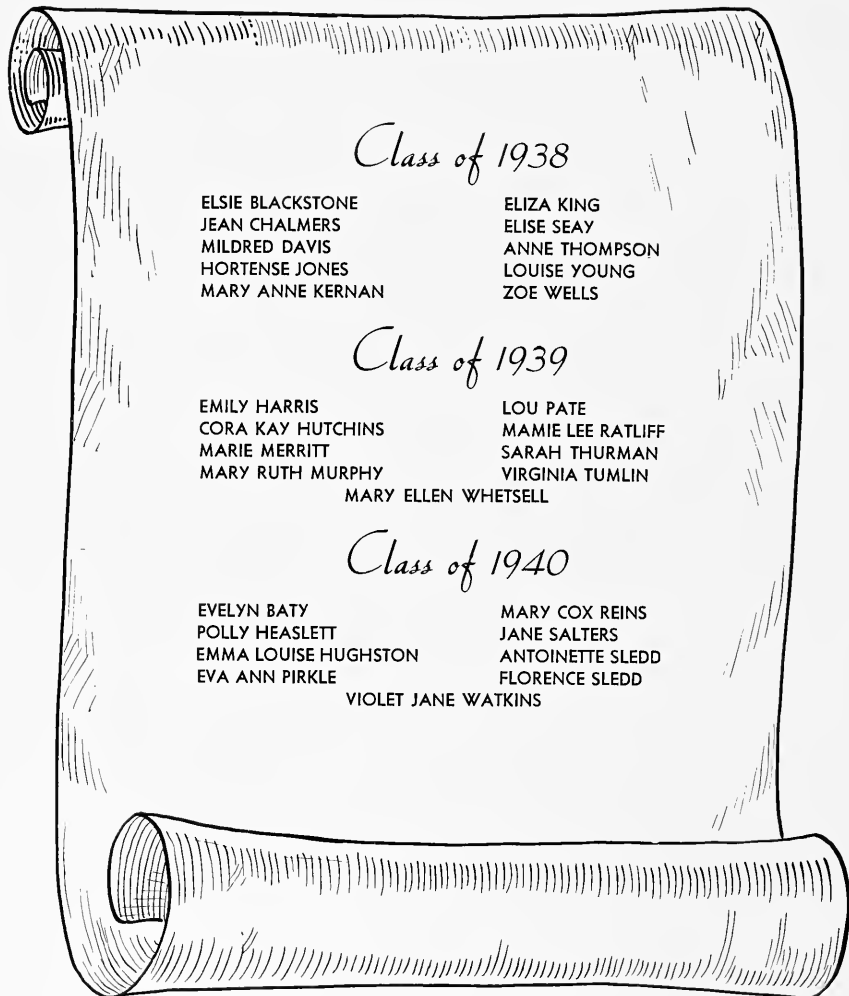 Class of 1938
ELSIE BLACKSTONE
JEAN CHALMERS
MILDRED DAVIS
HORTENSE JONES
MARY ANNE KERNAN
ELIZA KING
ELISE SEAY
ANNE THOMPSON
LOUISE YOUNG
ZOE WELLS
Class of 1939
EMILY HARRIS
CORA KAY HUTCHINS
MARIE MERRITT
MARY RUTH MURPHY
LOU PATE
MAMIE LEE RATLIFF
SARAH THURMAN
VIRGINIA TUMLIN
MARY ELLEN WHETSELL
Class of 1940
EVELYN BATY
POLLY HEASLETT
EMMA LOUISE HUGHSTON
EVA ANN PIRKLE
MARY COX REINS
JANE SALTERS
ANTOINETTE SLEDD
FLORENCE SLEDD
VIOLET JANE WATKINS